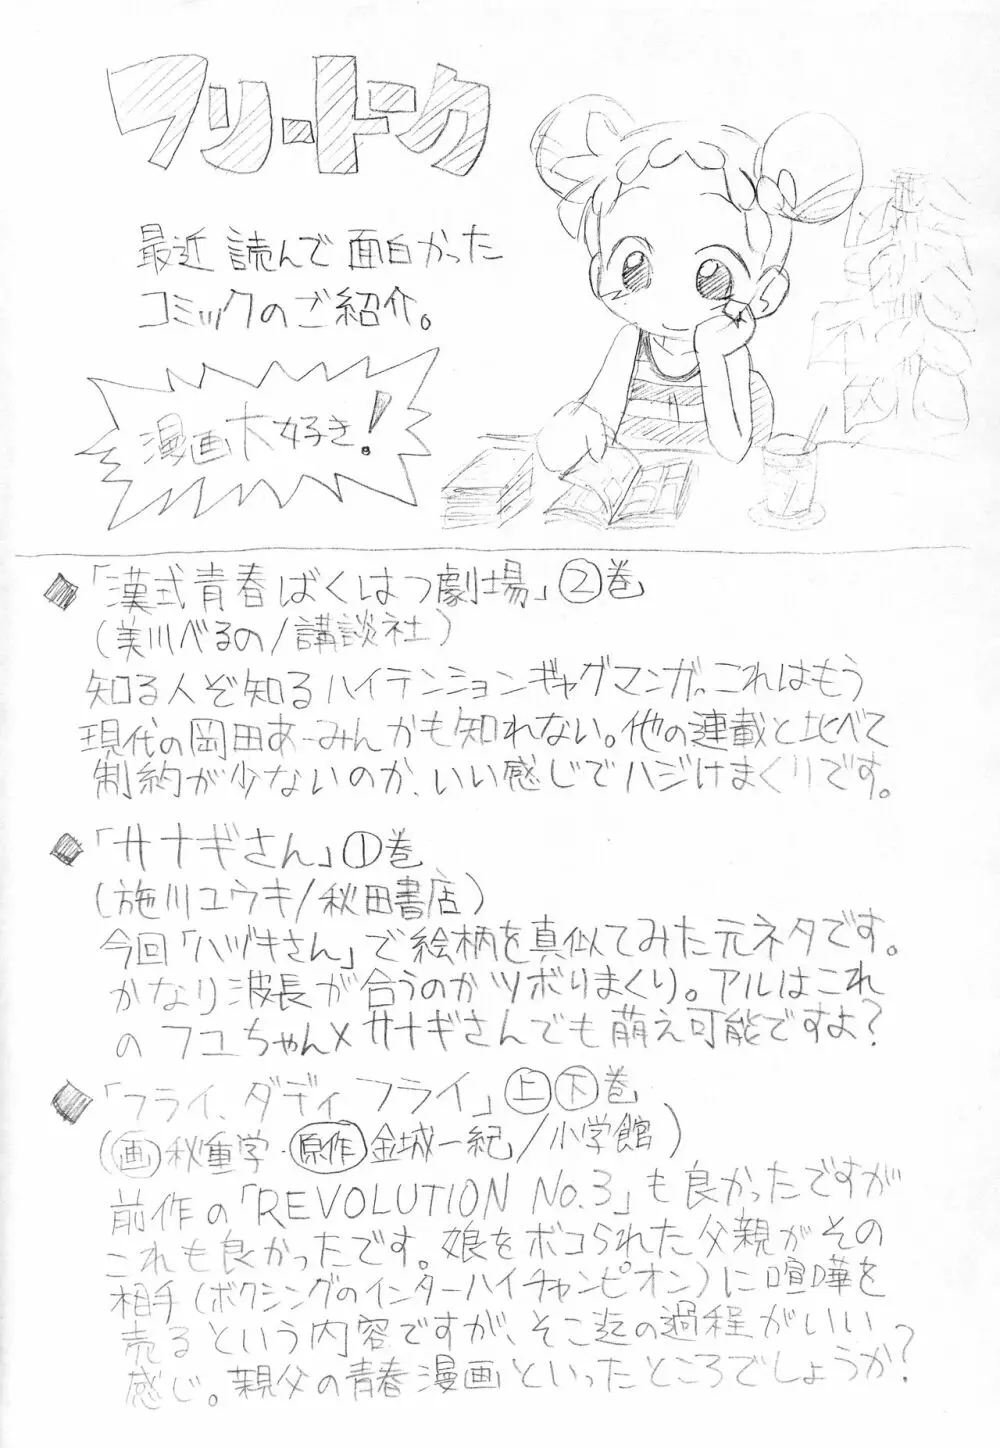 フリートーク
最近読んで面白かった
コミックのご紹介。
漫画大好き!
◆「漢式青春ばくはつ劇場」②巻
(美川べるの/講談社)
知る人ぞ知るハイテンションギャグマンガ。これはもう
現代の岡田あーみんかも知れない。他の連載と比べて
制約が少ないのか、いい感じでハジけまくりです。
◆「サナギさん」①巻
(施川ユウキ/秋田書店)
今回「ハヅキさん」で絵柄を真似てみた元ネタです。
かなり波長が合うのかツボりまくり。アルはこれ
のフユちゃん×サナギさんでも萌え可能ですよ?
◆「フライ、ダディ フライ」㊤㊦巻
(画秋重学・原作金城一紀/小学館)
前作の「REVOLUTION No.3」も良かったですが
これも良かったです。娘をボコられた父親がその
相手(ボクシングのインターハイチャンピオン)に喧嘩を
売るという内容ですが、そこ迄の過程がいい
感じ。親父の青春漫画といったところでしょうか?